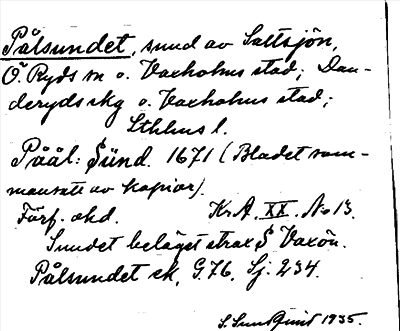 Pålsundet, sund av Saltsjön,
Ö Ryds sn o. Vaxholms stad; Dan-
deryds skg o. Vaxholms stad;
Sthlms l.
Pååls Sünd. 1671 (Bladet sam-
mansatt av kopior).
Förf. okd. Kr.A. XX. No 13.
Sundet beläget strax S Vaxön.
Pålsundet ek, G.76, Sj. 234.
S. Sundquist 1935.